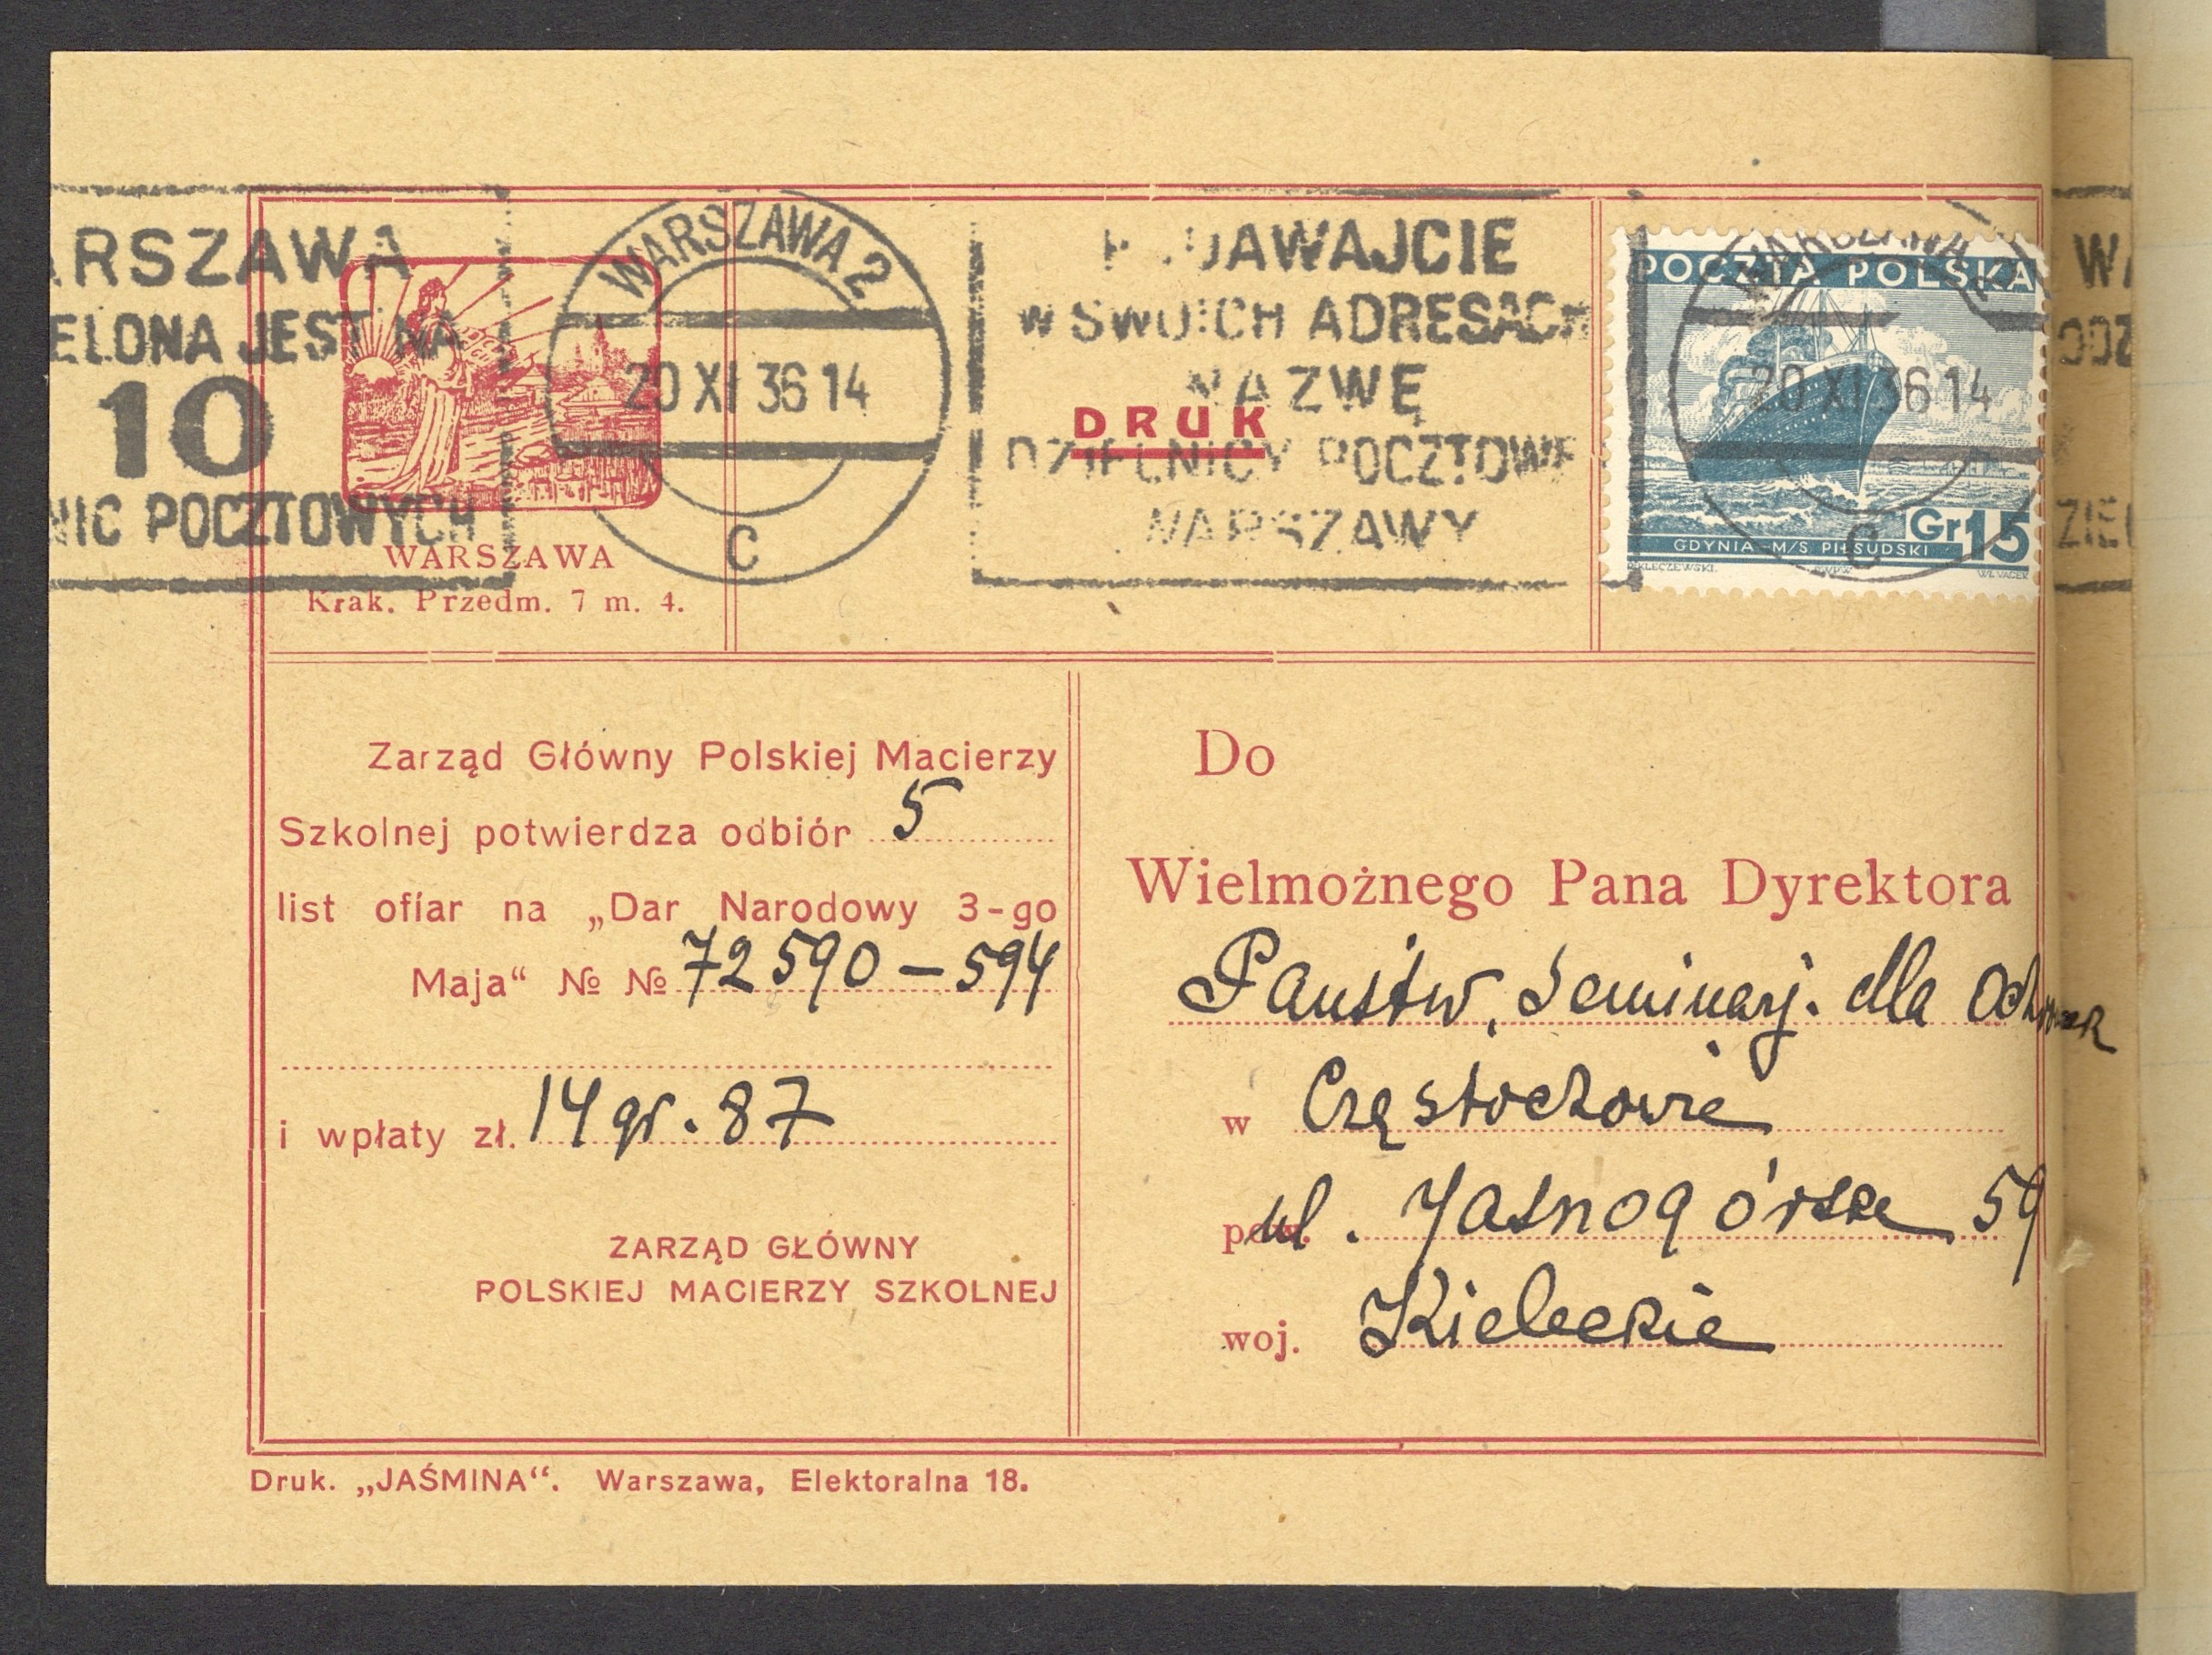 RSZAWA
ELONA JEST NA
10
NIC POCZTOWYCH
WARSZAWA 2
20 XI 36 14
C
DAWAJCIE
W SWOICH ADRESACH
NAZWĘ
DZIELNICY POCZTOWE
WARSZAWY
DRUK
POCZTA POLSKA
WARSZAWA
20 XI 36 14
C
Gr 15
GDYNIA - M/S PIŁSUDSKI
WARSZAWA
Krak. Przedm. 7 m. 4.
Zarząd Główny Polskiej Macierzy
Szkolnej potwierdza odbiór 5
list ofiar na „Dar Narodowy 3-go
Maja“ № № 72590 – 594
i wpłaty zł. 14 gr. 87
ZARZĄD GŁÓWNY
POLSKIEJ MACIERZY SZKOLNEJ
Do
Wielmożnego Pana Dyrektora
Państw. Seminarj. dla
w Częstochowie
pow. ul. Jasnogórska 59
woj. Kieleckie
Druk. „JAŚMINA“. Warszawa, Elektoralna 18.